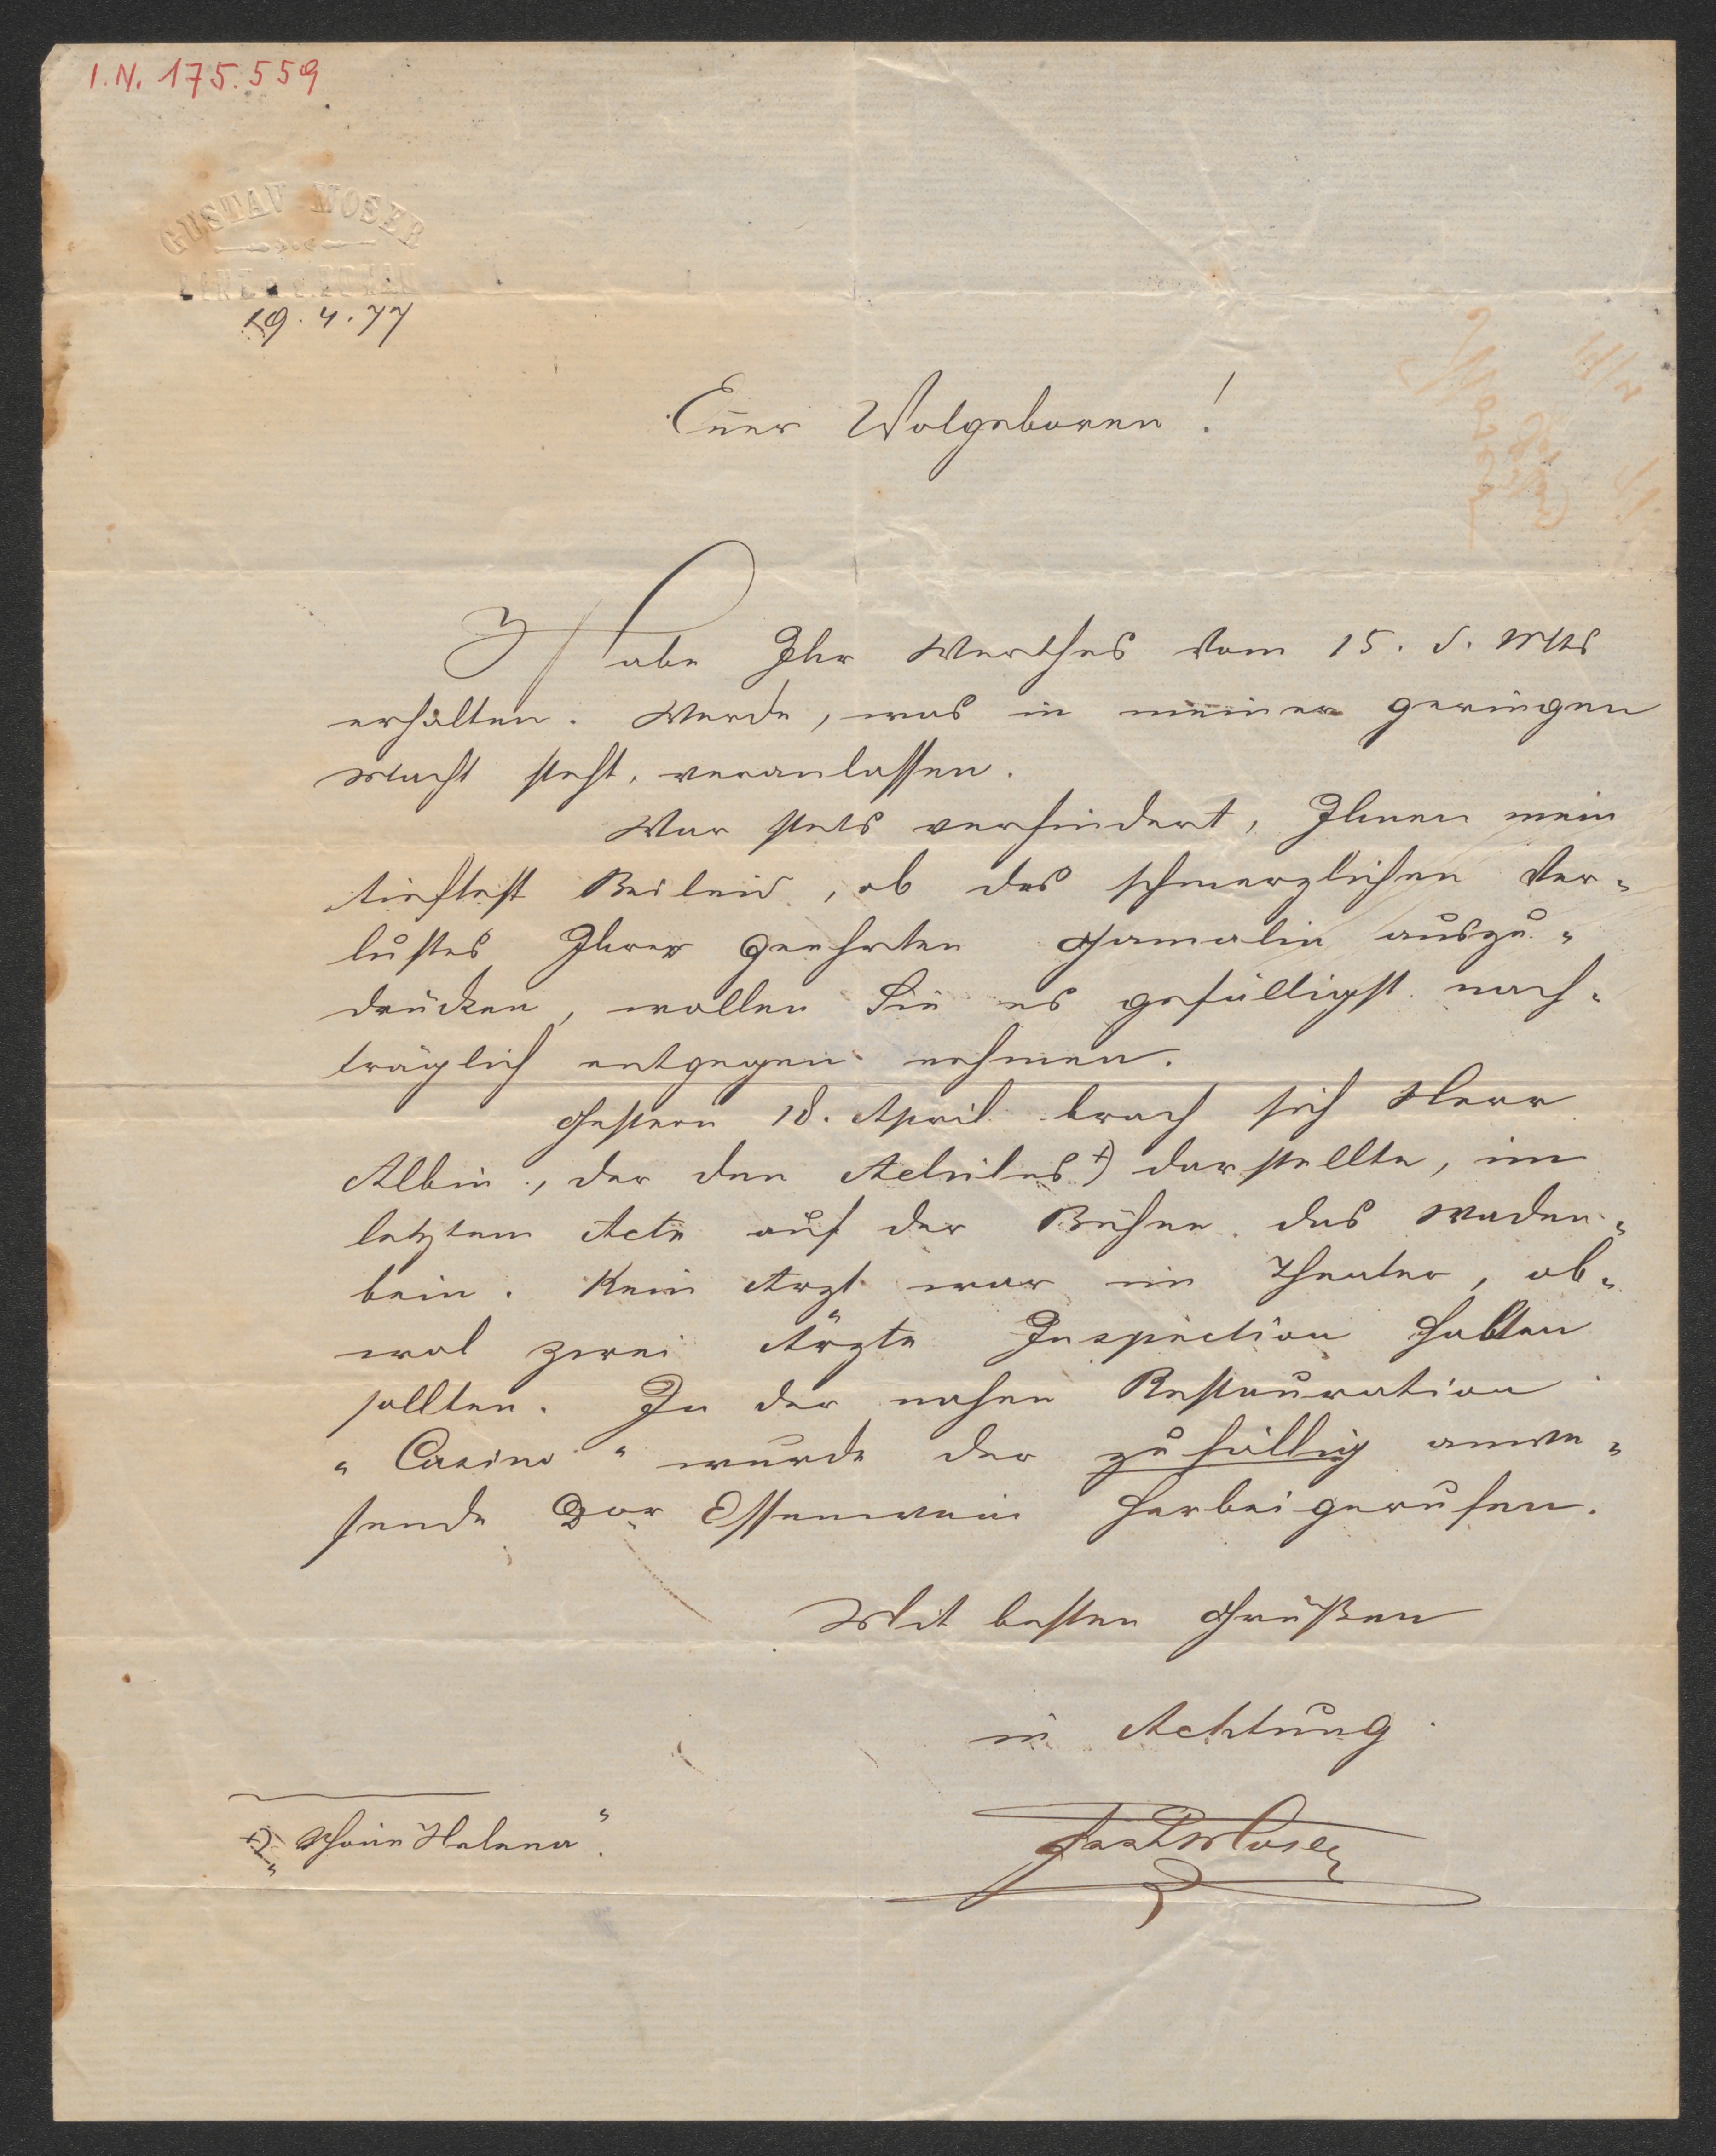 I.N. 175.559
GUSTAV MOSER
LINZ a. d. DONAU
19. 4. 77
Euer Wolgeboren!
Habe Ihr Werthes vom 15. d. Mts
erhalten. Werde, was in meiner geringen
Macht steht, veranlassen.
War stets verhindert, Ihnen mein
tiefstest Beileid, ob des schmerzlichen Ver-
lustes Ihrer geehrten Gemalin auszu-
drücken, wollen Sie es gefälligst nach-
träglich entgegen nehmen.
Gestern 18. April brach sich Herr
Albin, der den Achiles +) darstellte, im
letzten Acte auf der Bühne das Waden-
bein. Kein Arzt war im Theater, ob-
wol zwei Ärzte Inspection halten
sollten. In der nahen Restauration
"Casino" wurde der zufällig anwe-
sende Dor Essenwein herbeigerufen.
Mit besten Grüßen
in Achtung
Gust Moser
+) "Schöne Helena".